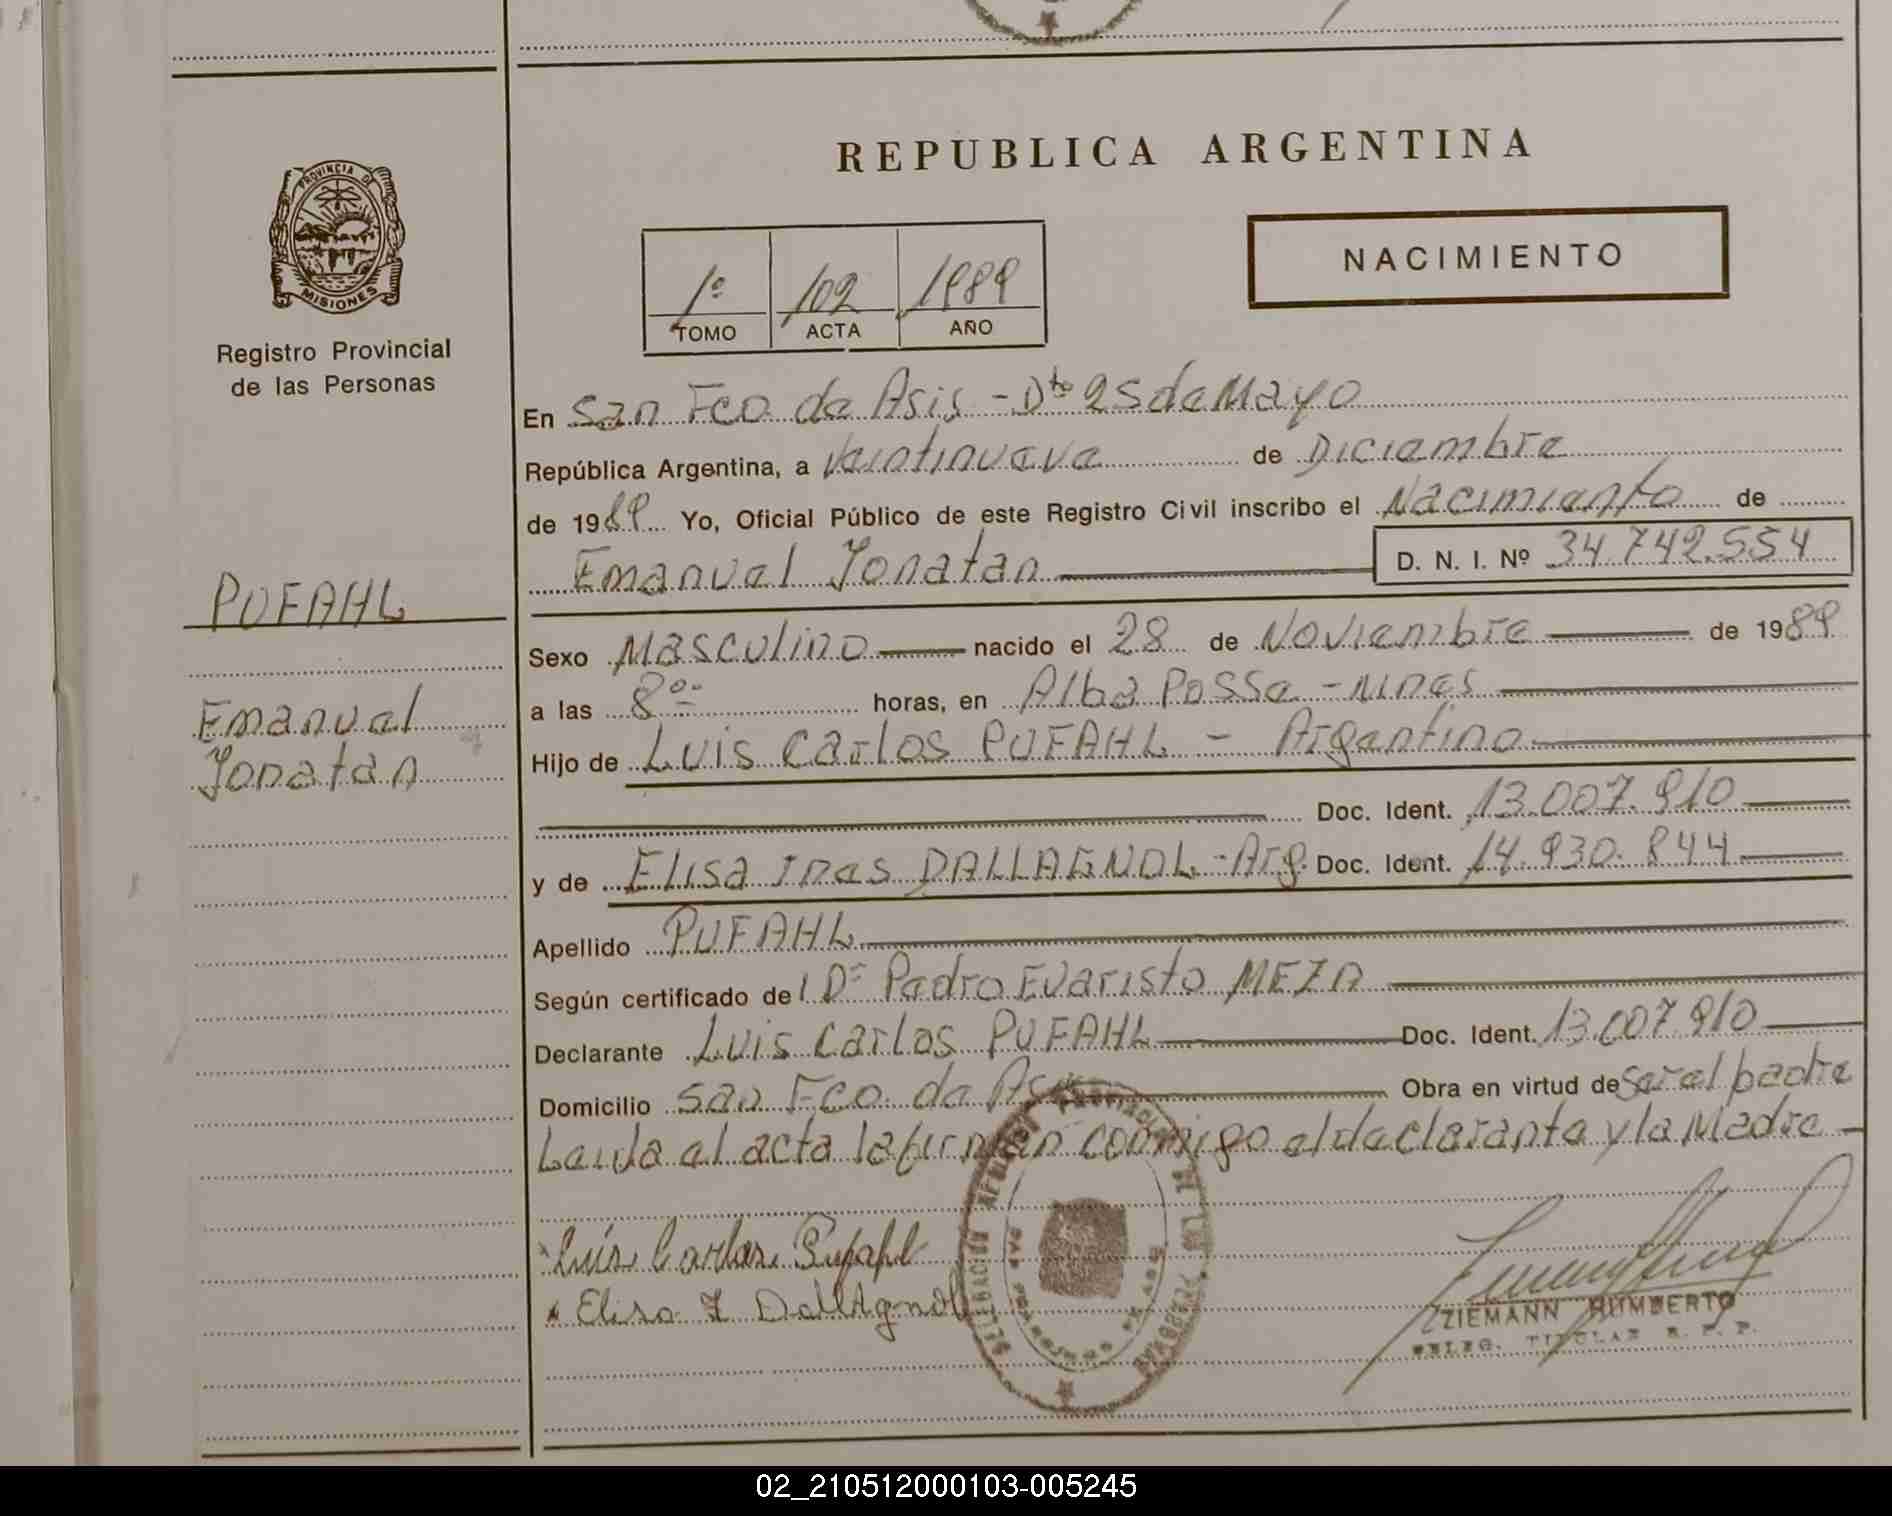 REPUBLICA ARGENTINA
PROVINCIA DE
MISIONES
Registro Provincial
de las Personas
NACIMIENTO
1º 102 1989
TOMO ACTA AÑO
En San Fco de Asis - Dto 25 de Mayo
República Argentina, a Veintinueve de Diciembre
de 1989 Yo, Oficial Público de este Registro Civil inscribo el Nacimiento de
Emanuel Jonatan D. N. I. Nº 34.742.554
PUFAHL
Emanuel
Jonatan
Sexo Masculino nacido el 28 de Noviembre de 1989
a las 8 horas, en Alba Posse - Mnes
Hijo de Luis Carlos PUFAHL - Argentino
Doc. Ident. 13.007.910
y de Elisa Ines DALLAGNOL - Arg. Doc. Ident. 14.930.844
Apellido PUFAHL
Según certificado del Dr Pedro Evaristo MEZA
Declarante Luis Carlos PUFAHL Doc. Ident. 13.007.910
Domicilio San Fco. de As Obra en virtud de ser el padre
Leida el acta la firman conmigo el declarante y la Madre
Luis Carlos Pufahl
Elisa I DallAgnol
ZIEMANN HUMBERTO
DELEG. TITULAR R. P. P.
02_210512000103-005245